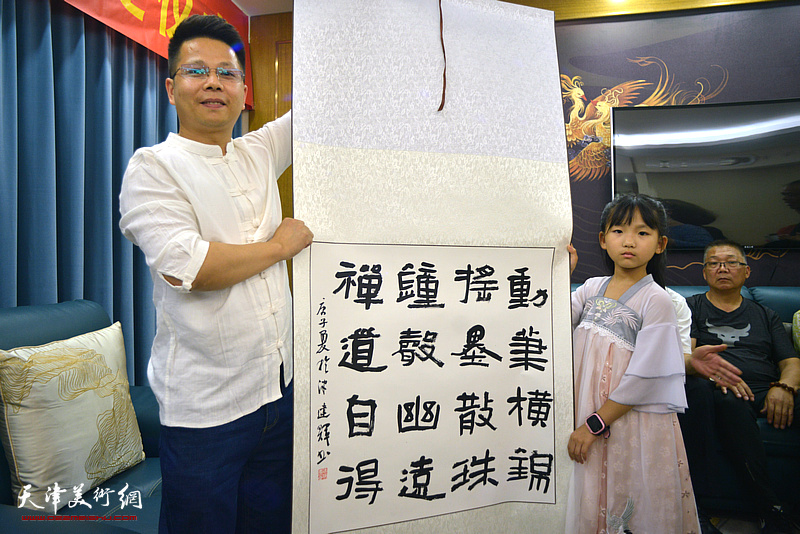 動筆橫錦
搖墨散珠
鐘聲幽遠
禪道自得
庚子夏於津建輝書
天津美術網